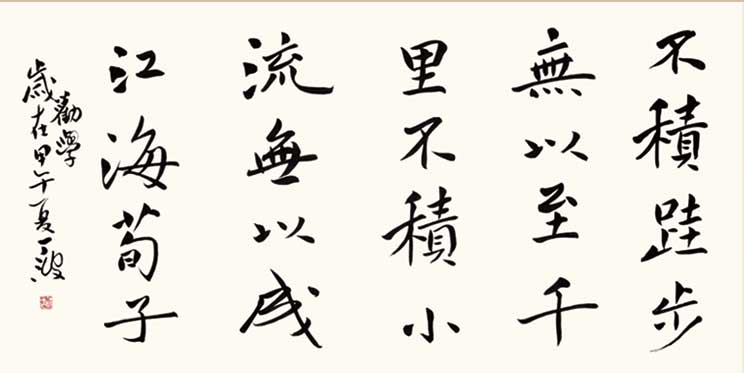 不積跬步
無以至千
里不積小
流無以成
江海荀子
勸學
歲在甲午夏